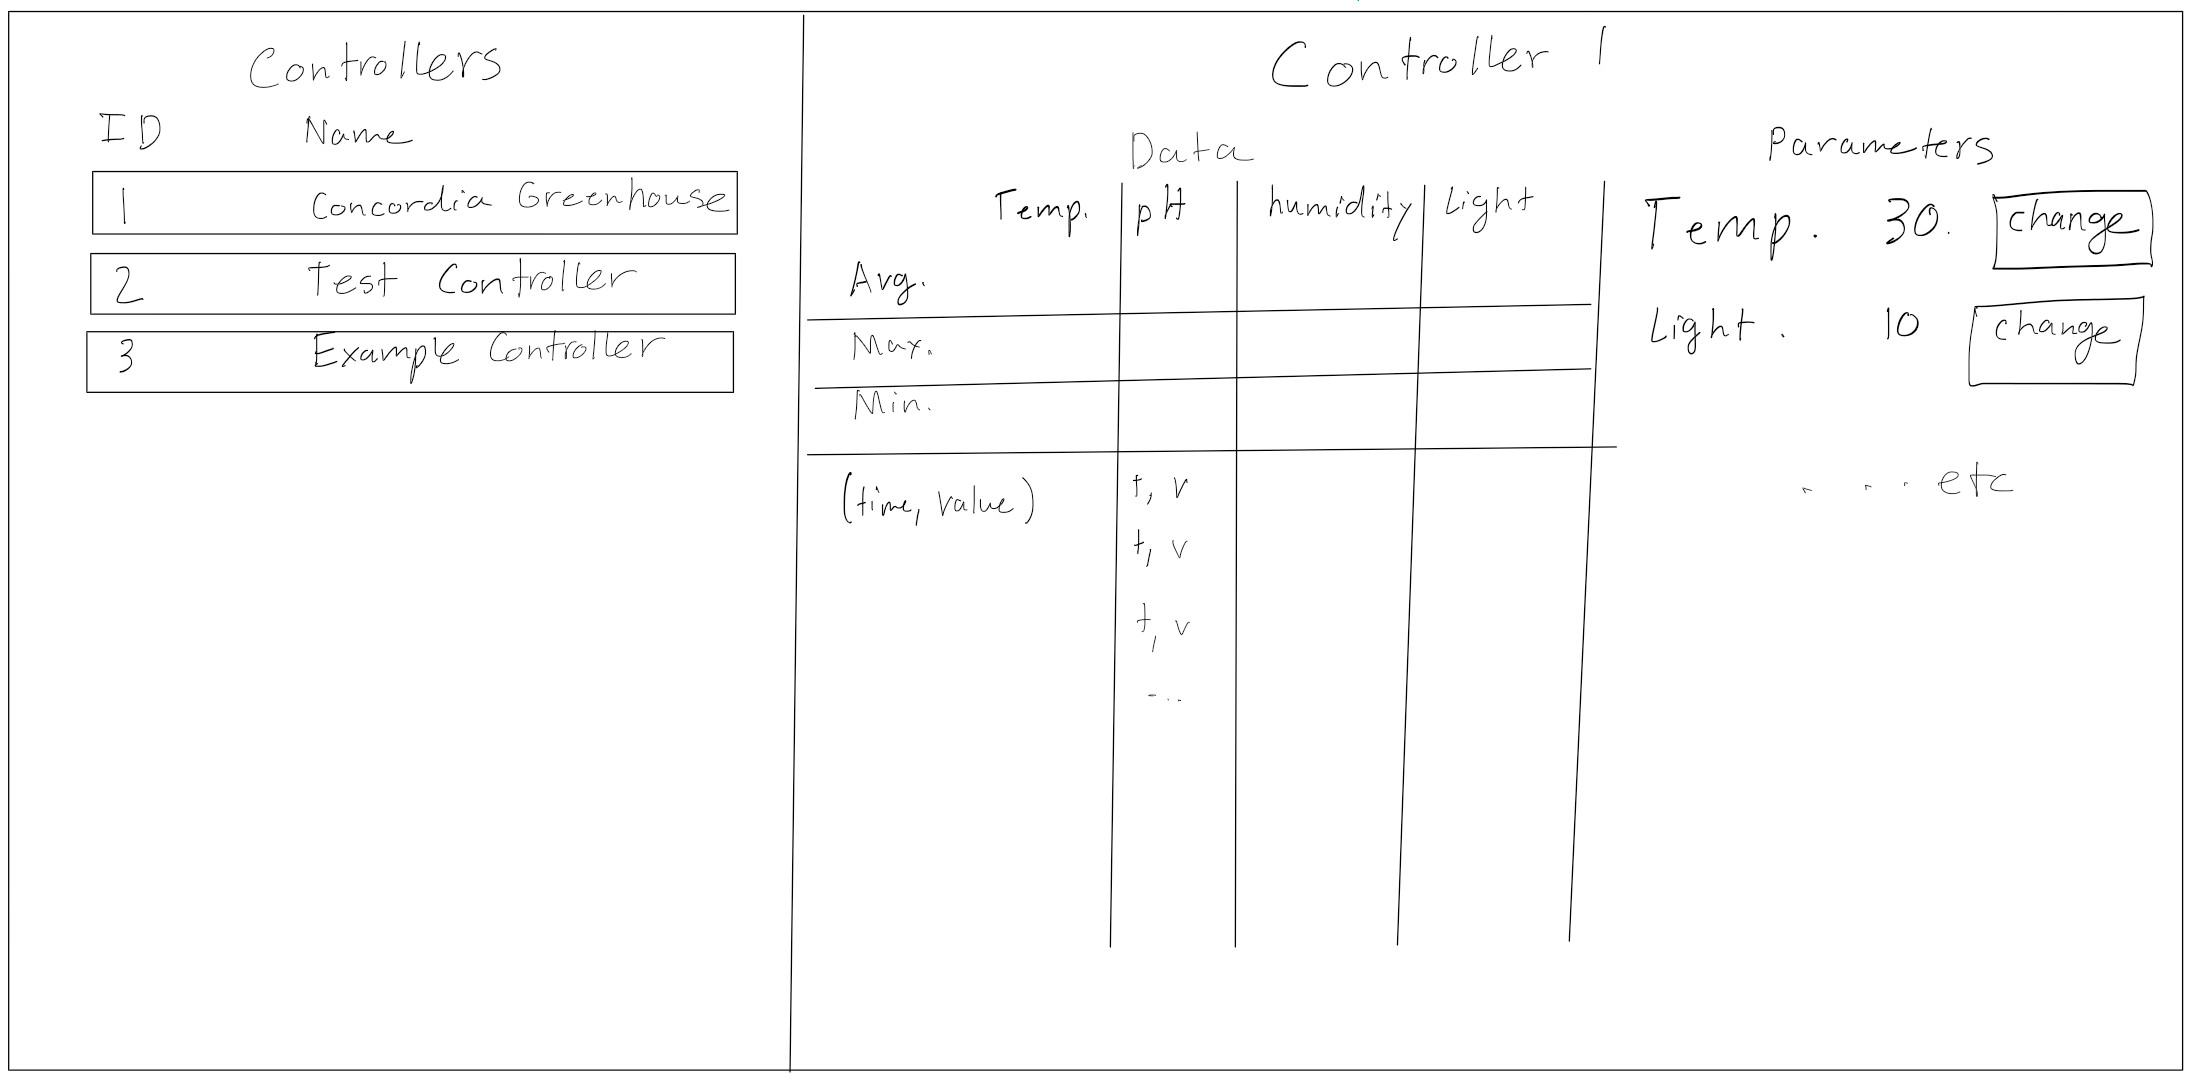 Controllers
ID Name
1 Concordia Greenhouse
2 Test Controller
3 Example Controller
Controller 1
Data
Temp. pH humidity Light
Avg.
Max.
Min.
(time, value) t, v
t, v
t, v
...
Parameters
Temp. 30. change
Light. 10 change
... etc